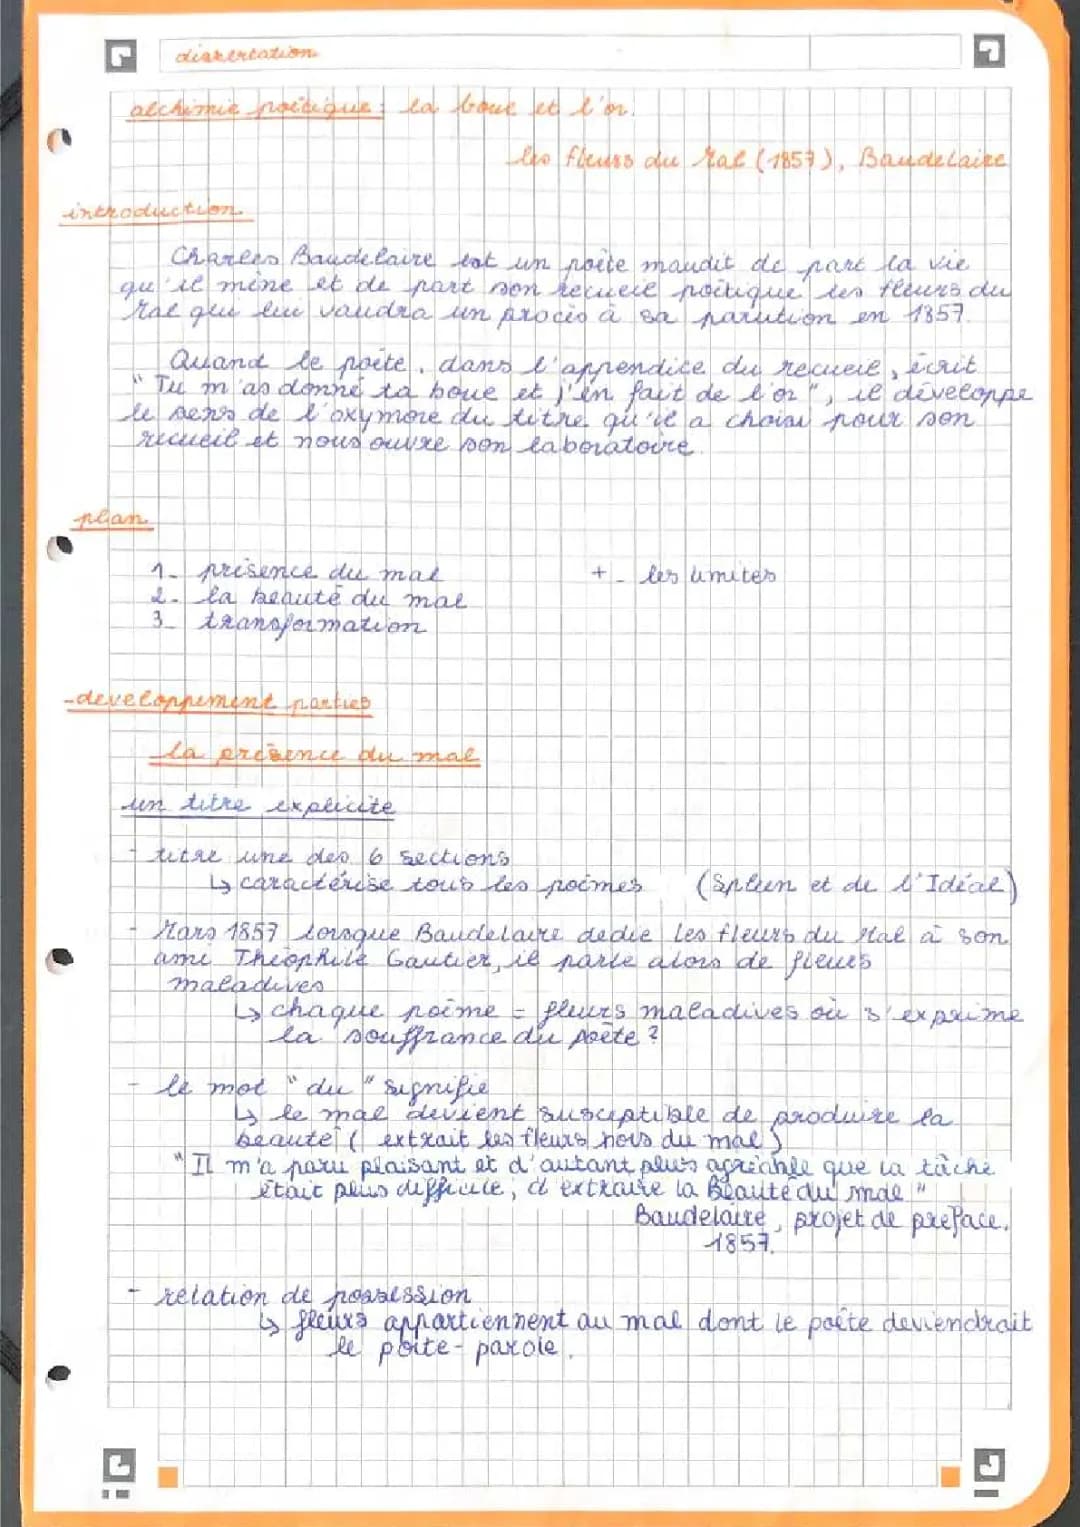 dissertation
alchimie poétique : la boue et l'or.
les fleurs du Mal (1857), Baudelaire
introduction
Charles Baudelaire est un poète maudit de part la vie
qu'il mène et de part son recueil poétique les fleurs du
Mal qui lui vaudra un procès à sa parution en 1857.
Quand le poète, dans l'appendice du recueil, écrit
"Tu m'as donné ta boue et j'en fait de l'or", il développe
le sens de l'oxymore du titre qu'il a choisi pour son
recueil et nous ouvre son laboratoire.
plan
1- présence du mal + - les limites
2- la beauté du mal
3- transformation
-developpement parties
la présence du mal
un titre explicite
- titre une des 6 sections
↳ caractérise tous les poèmes (Spleen et de l'Idéal)
- Mars 1857 lorsque Baudelaire dedie les fleurs du Mal à son
ami Théophile Gautier, il parle alors de fleurs
maladives
↳ chaque poème = fleurs maladives où s'exprime
la souffrance du poète ?
- le mot "du" signifie
↳ le mal devient susceptible de produire la
beauté ( extrait les fleurs hors du mal )
"Il m'a paru plaisant et d'autant plus agréable que la tâche
était plus difficile, d'extraire la Beauté du mal"
Baudelaire, projet de preface,
1857.
- relation de possession
↳ fleurs appartiennent au mal dont le poète deviendrait
le porte-parole.